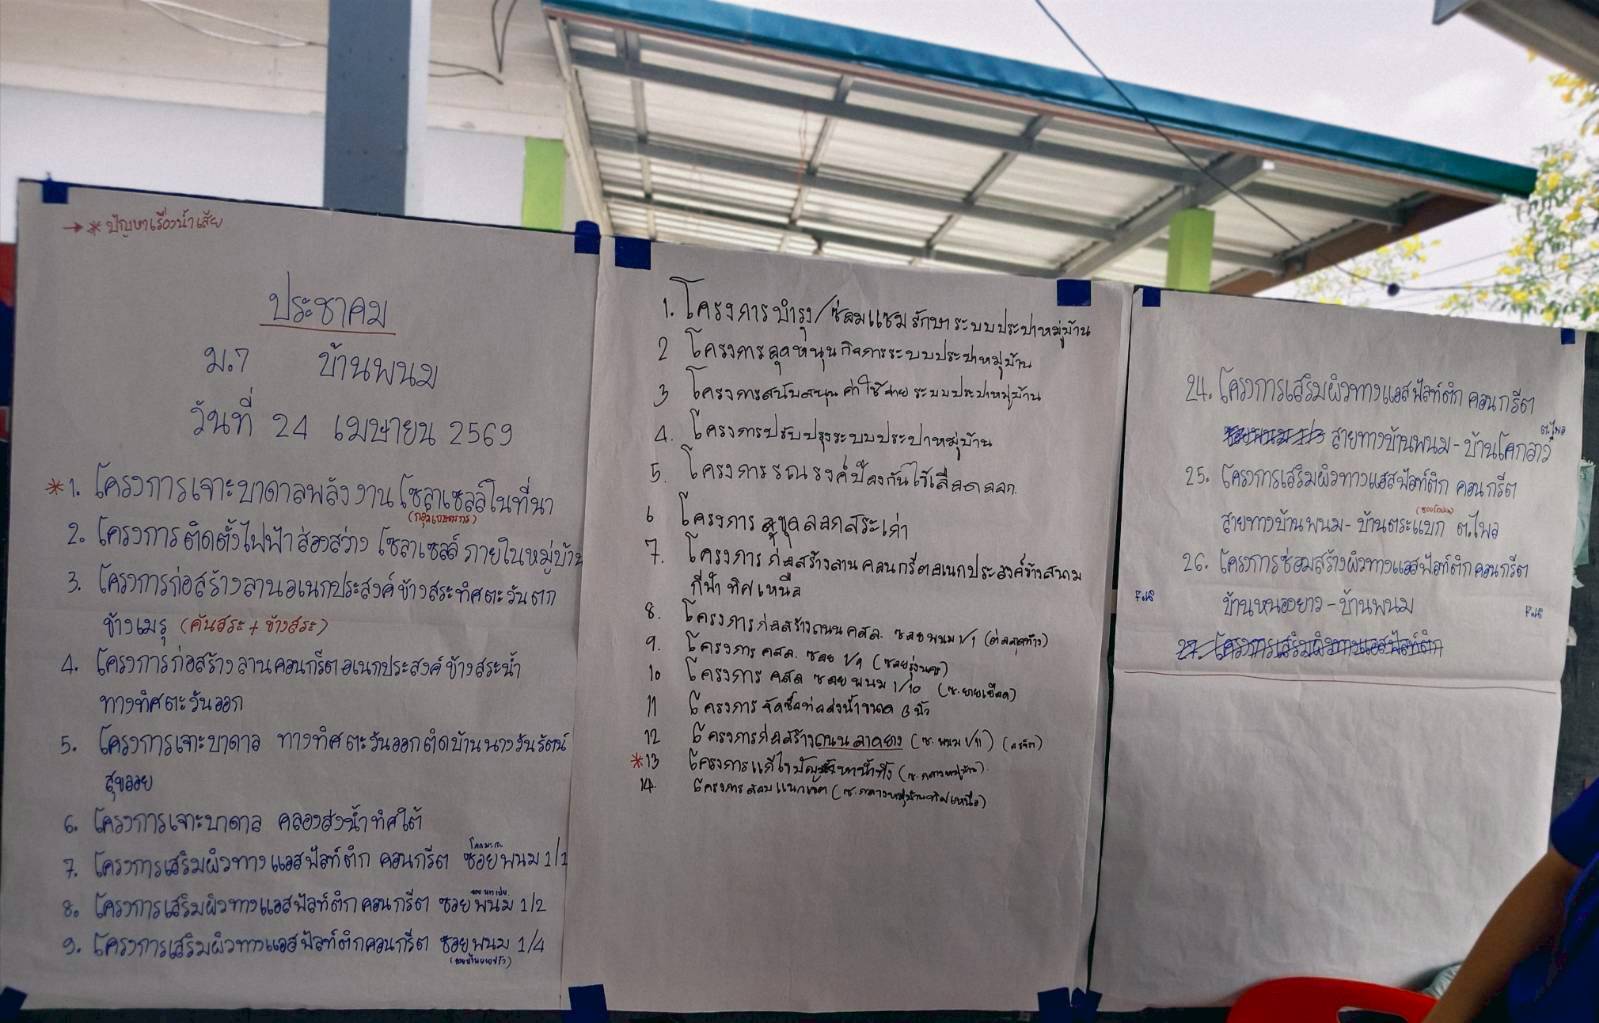 → * ปัญหาเรื่องน้ำเสีย
ประชาคม
ม.7 บ้านพนม
วันที่ 24 เมษายน 2569
* 1. โครงการเจาะบาดาลพลังงานโซลาเซลล์ในที่นา
(กลุ่มเกษตรกร)
2. โครงการติดตั้งไฟฟ้าส่องสว่าง โซลาเซลล์ ภายในหมู่บ้าน
3. โครงการก่อสร้างลานอเนกประสงค์ข้างสระทิศตะวันตก
ข้างเมรุ (คันสระ + ข้างสระ)
4. โครงการก่อสร้างลานคอนกรีตอเนกประสงค์ข้างสระน้ำ
ทางทิศตะวันออก
5. โครงการเจาะบาดาล ทางทิศตะวันออกติดบ้านนางวันรัตน์
สุขลอย
6. โครงการเจาะบาดาล คลองส่งน้ำทิศใต้
7. โครงการเสริมผิวทางแอสฟัลท์ติก คอนกรีต ซอยพนม 1/1
8. โครงการเสริมผิวทางแอสฟัลท์ติกคอนกรีต ซอยพนม 1/2
9. โครงการเสริมผิวทางแอสฟัลท์ติกคอนกรีต ซอยพนม 1/4
1. โครงการบำรุง/ซ่อมแซมรักษาระบบประปาหมู่บ้าน
2 โครงการอุดหนุนกิจการระบบประปาหมู่บ้าน
3 โครงการสนับสนุนค่าใช้จ่ายระบบประปาหมู่บ้าน
4. โครงการปรับปรุงระบบประปาหมู่บ้าน
5. โครงการรณรงค์ป้องกันไข้เลือดออก
6 โครงการขุดลอกสระเก่า
7. โครงการก่อสร้างลานคอนกรีตอเนกประสงค์ข้างสนาม
กีฬาทิศเหนือ
8. โครงการก่อสร้างถนน คสล. ซอยพนม 1/1
9. โครงการ คสล. ซอย 1/9
10 โครงการ คสล ซอยพนม 1/10 (ซ.ยายเขียด)
11 โครงการจัดซื้อท่อส่งน้ำขนาด 8 นิ้ว
12 โครงการก่อสร้างถนนลาดยาง (ซ. พนม 1/11)
* 13 โครงการแก้ไขปัญหาน้ำทิ้ง (ซ.กลางหมู่บ้าน)
14. โครงการ (ซ.กลางหมู่บ้านทิศเหนือ)
24. โครงการเสริมผิวทางแอสฟัลท์ติก คอนกรีต
สายทางบ้านพนม - บ้านโคกลาว ต.ไพล
25. โครงการเสริมผิวทางแอสฟัลท์ติก คอนกรีต
สายทางบ้านพนม - บ้านตระแบก ต.ไพล
26. โครงการซ่อมสร้างผิวทางแอสฟัลท์ติกคอนกรีต
บ้านหนองยาว - บ้านพนม
27. โครงการเสริมผิวทางแอสฟัลท์ติก